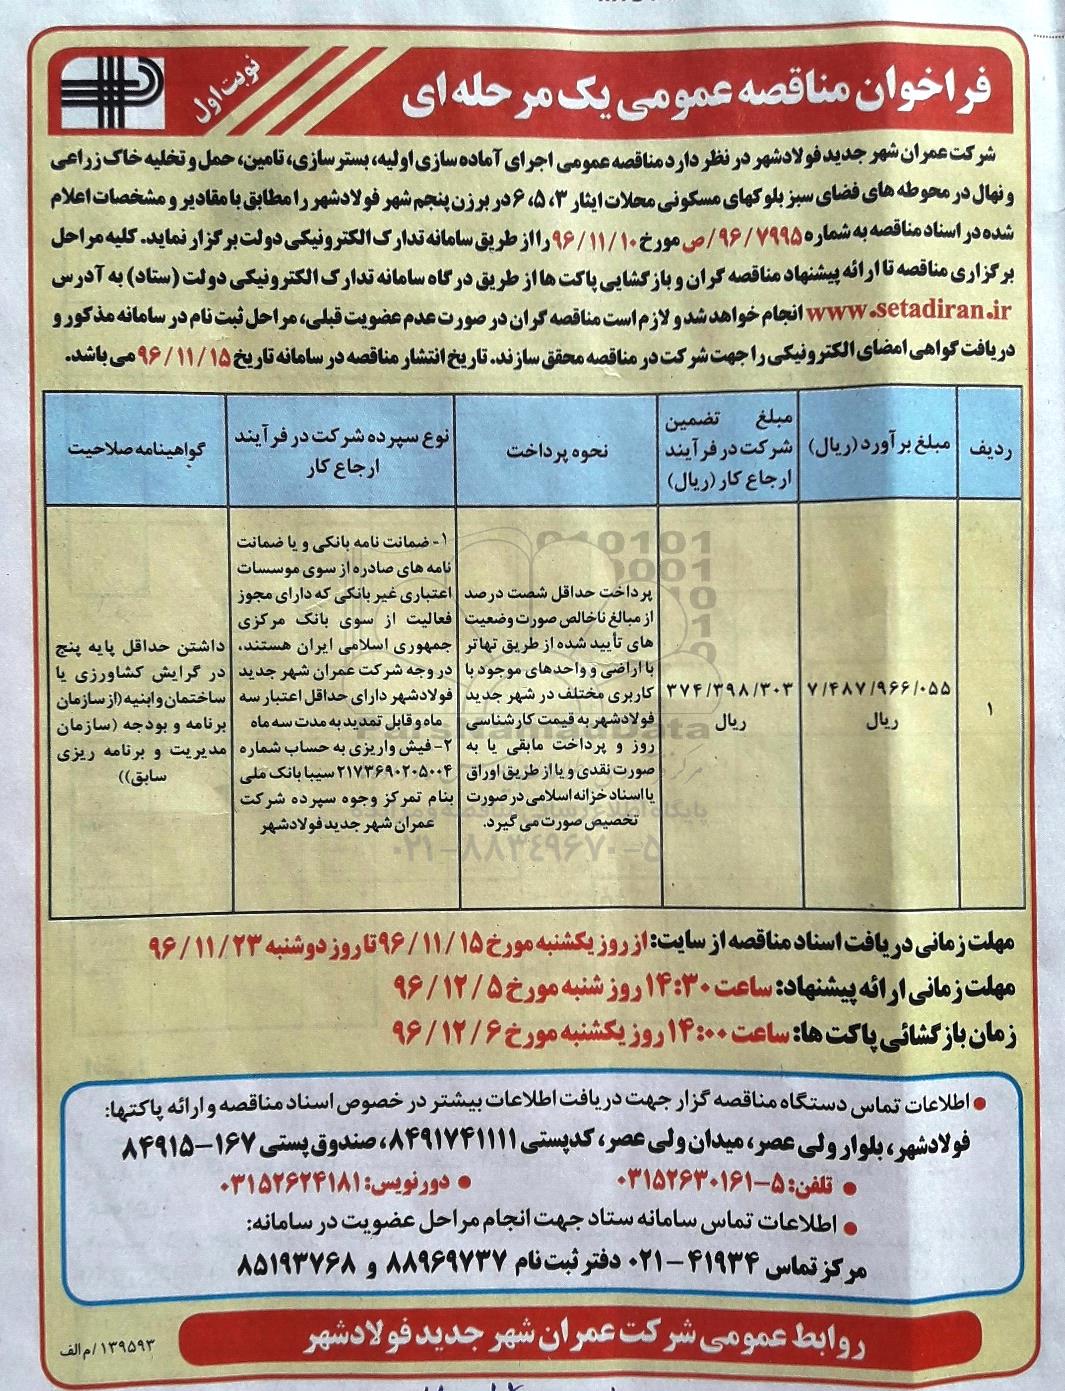 فراخوان مناقصه عمومی یک مرحله ای
نوبت اول
شرکت عمران شهر جدید فولادشهر در نظر دارد مناقصه عمومی اجرای آماده سازی اولیه، بستر سازی، تامین، حمل و تخلیه خاک زراعی
و نهال در محوطه های فضای سبز بلوکهای مسکونی محلات ایثار ۳، ۵، ۶ در برزن پنجم شهر فولادشهر را مطابق با مقادیر و مشخصات اعلام
شده در اسناد مناقصه به شماره ۹۶/۷۹۹۵/ص مورخ ۹۶/۱۱/۱۰ را از طریق سامانه تدارک الکترونیکی دولت برگزار نماید. کلیه مراحل
برگزاری مناقصه تا ارائه پیشنهاد مناقصه گران و بازگشایی پاکت ها از طریق درگاه سامانه تدارک الکترونیکی دولت (ستاد) به آدرس
www.setadiran.ir انجام خواهد شد و لازم است مناقصه گران در صورت عدم عضویت قبلی، مراحل ثبت نام در سامانه مذکور و
دریافت گواهی امضای الکترونیکی را جهت شرکت در مناقصه محقق سازند. تاریخ انتشار مناقصه در سامانه تاریخ ۹۶/۱۱/۱۵ می باشد.
ردیف
مبلغ برآورد (ریال)
مبلغ تضمین
شرکت در فرآیند
ارجاع کار (ریال)
نحوه پرداخت
نوع سپرده شرکت در فرآیند
ارجاع کار
گواهینامه صلاحیت
۱
۷/۴۸۷/۹۶۶/۰۵۵
ریال
۳۷۴/۳۹۸/۳۰۳
ریال
پرداخت حداقل شصت درصد
از مبالغ ناخالص صورت وضعیت
های تأیید شده از طریق تهاتر
با اراضی و واحدهای موجود با
کاربری مختلف در شهر جدید
فولادشهر به قیمت کارشناسی
روز و پرداخت مابقی یا به
صورت نقدی و یا از طریق اوراق
یا اسناد خزانه اسلامی در صورت
تخصیص صورت می گیرد.
۱- ضمانت نامه بانکی و یا ضمانت
نامه های صادره از سوی موسسات
اعتباری غیر بانکی که دارای مجوز
فعالیت از سوی بانک مرکزی
جمهوری اسلامی ایران هستند،
در وجه شرکت عمران شهر جدید
فولادشهر دارای حداقل اعتبار سه
ماه و قابل تمدید به مدت سه ماه
۲- فیش واریزی به حساب شماره
۲۱۷۳۶۹۰۲۰۵۰۰۴ سیبا بانک ملی
بنام تمرکز وجوه سپرده شرکت
عمران شهر جدید فولادشهر
داشتن حداقل پایه پنج
در گرایش کشاورزی یا
ساختمان و ابنیه (از سازمان
برنامه و بودجه (سازمان
مدیریت و برنامه ریزی
سابق))
ParsNamadData
۰۲۱-۸۸۳۴۹۶۷۰-۵
مهلت زمانی دریافت اسناد مناقصه از سایت: از روز یکشنبه مورخ ۹۶/۱۱/۱۵ تا روز دوشنبه ۹۶/۱۱/۲۳
مهلت زمانی ارائه پیشنهاد: ساعت ۱۴:۳۰ روز شنبه مورخ ۹۶/۱۲/۵
زمان بازگشائی پاکت ها: ساعت ۱۴:۰۰ روز یکشنبه مورخ ۹۶/۱۲/۶
● اطلاعات تماس دستگاه مناقصه گزار جهت دریافت اطلاعات بیشتر در خصوص اسناد مناقصه و ارائه پاکتها:
فولادشهر، بلوار ولی عصر، میدان ولی عصر، کدپستی ۸۴۹۱۷۴۱۱۱۱، صندوق پستی ۱۶۷-۸۴۹۱۵
● تلفن: ۵-۰۳۱۵۲۶۳۰۱۶۱ ● دورنویس: ۰۳۱۵۲۶۲۴۱۸۱
● اطلاعات تماس سامانه ستاد جهت انجام مراحل عضویت در سامانه:
مرکز تماس ۴۱۹۳۴-۰۲۱ دفتر ثبت نام ۸۸۹۶۹۷۳۷ و ۸۵۱۹۳۷۶۸
روابط عمومی شرکت عمران شهر جدید فولادشهر
۱۳۹۵۹۳/م الف